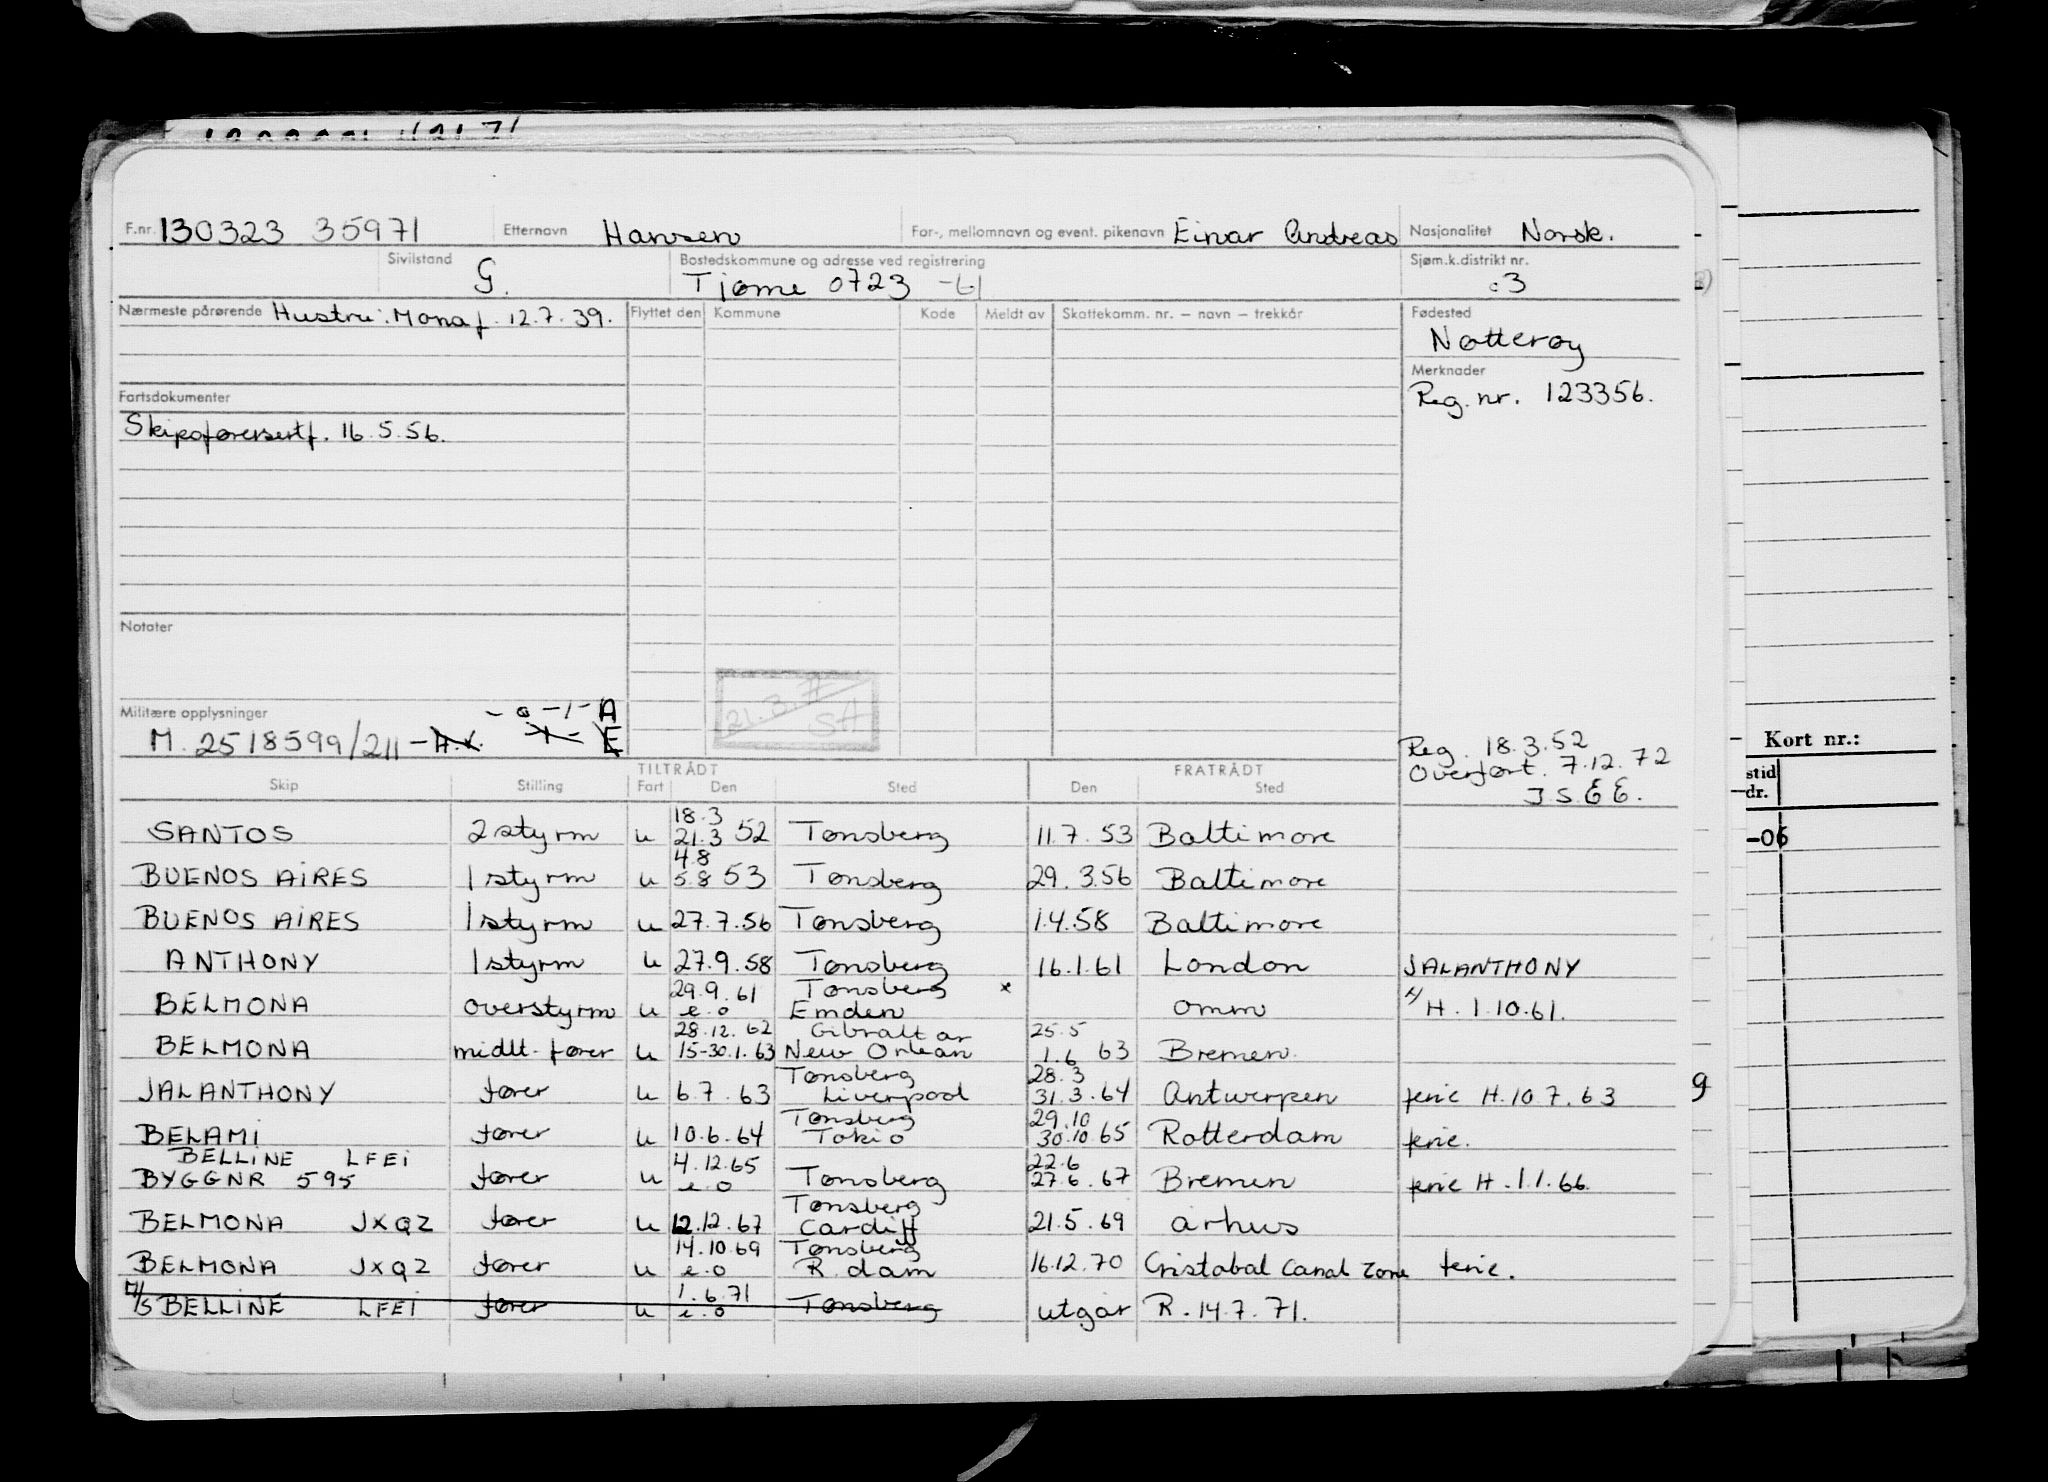 F.nr. 130323 35971 Etternavn Hansen For-, mellomnavn og event. pikenavn Einar Andreas Nasjonalitet Norsk.
Sivilstand G. Bostedskommune og adresse ved registrering Tjøme 0723 Sjøm.k.distrikt nr. 03
Nærmeste pårørende Hustru: Mona f. 12.7.39. Flyttet den Kommune Kode Meldt av Skattekomm. nr. – navn – trekkår Fødested
Nøtterøy
Merknader
Reg. nr. 123356.
Fartsdokumenter
Skipsførersertf. 16.5.56.
Notater
21.3.77
SA
Militære opplysninger - 0 -1- A
M. 2518599/211 - H.V. -1- E
Reg. 18.3.52
Overført. 7.12.72
J.S.E.E.
Kort nr.:
TILTRÅDT FRATRÅDT
Skip Stilling Fart Den Sted Den Sted
stid
dr.
-06
18.3
SANTOS 2 styrm u 21.3 52 Tønsberg 11.7.53 Baltimore
4.8
BUENOS AIRES 1 styrm u 5.8 53 Tønsberg 29.3.56 Baltimore
BUENOS AIRES 1 styrm u 27.7.56 Tønsberg 1.4.58 Baltimore
ANTHONY 1 styrm u 27.9.58 Tønsberg 16.1.61 London JALANTHONY
29.9.61 Tønsberg x
BELMONA overstyrm u e.o Emden omm H. 1.10.61.
28.12.62 Gibraltar 25.5
BELMONA midlt. fører u 15-30.1.63 New Orlean 1.6 63 Bremen.
Tønsberg 28.3
JALANTHONY fører u 6.7.63 Liverpool 31.3.64 Antwerpen ferie H. 10.7.63
9
Tønsberg 29.10
BELAMI fører u 10.6.64 Tokio 30.10 65 Rotterdam ferie.
BELLINE LFEI 4.12.65 22.6
BYGGNR 595 fører u e.o Tønsberg 27.6.67 Bremen ferie H. 1.1.66.
Tønsberg
BELMONA JXQZ fører u 12.12.67 Cardiff 21.5.69 århus
14.10.69 Tønsberg
BELMONA JXQZ fører u e.o R.dam 16.12.70 Cristobal Canal Zone ferie.
1.6.71
M/S BELLINE LFEI fører u e.o Tønsberg utgår R. 14.7.71.